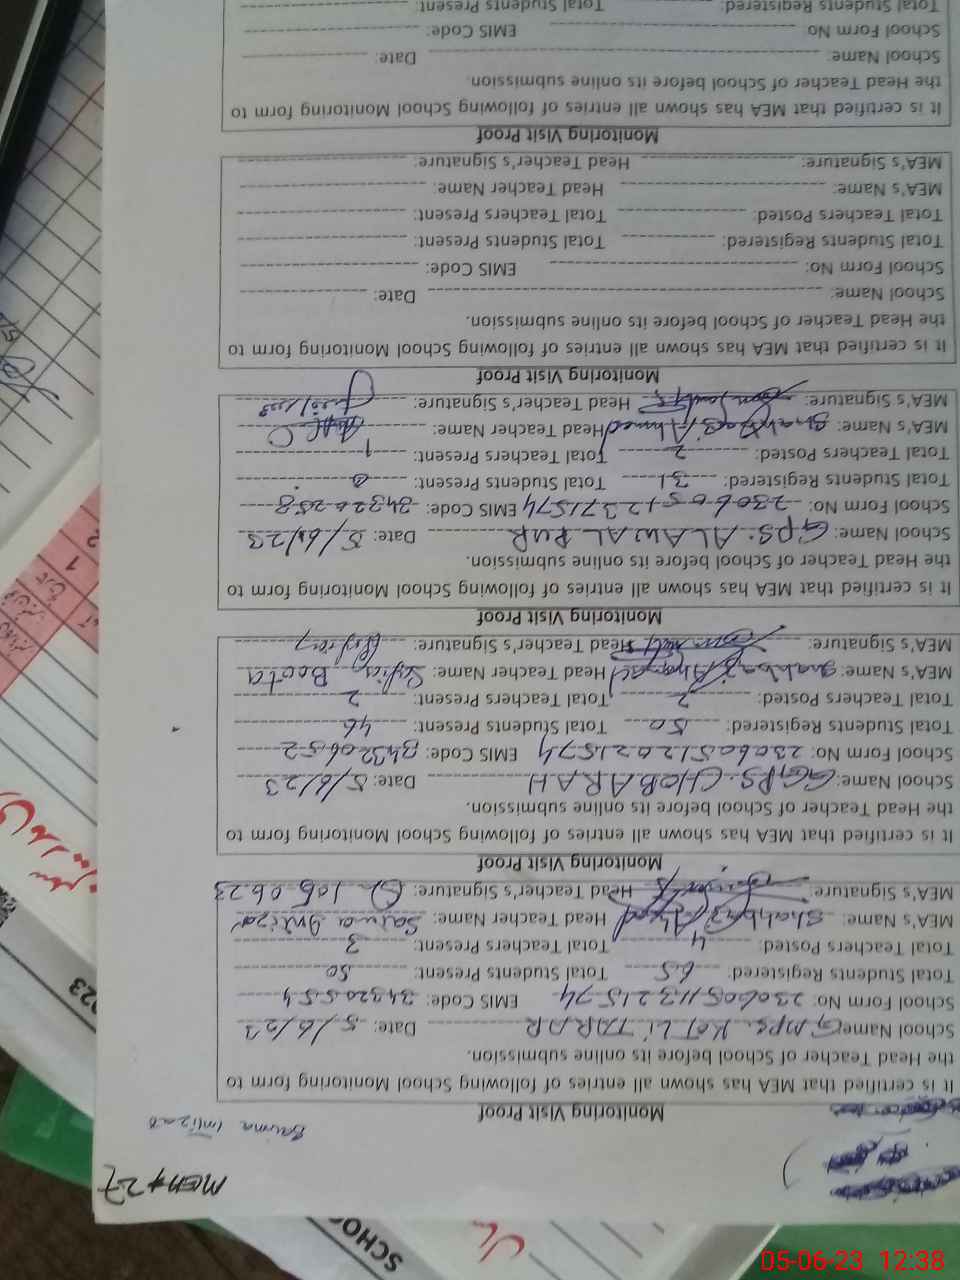 MEA#27
Saima Intizab
Monitoring Visit Proof
It is certified that MEA has shown all entries of following School Monitoring form to
the Head Teacher of School before its online submission.
School Name: GMPS. KOTLI TARAR Date: 5/6/23
School Form No: 23060511321574 EMIS Code: 34320554
Total Students Registered: 65 Total Students Present: 50
Total Teachers Posted: 4 Total Teachers Present: 3
MEA's Name: Shahbaz Ahmad Head Teacher Name: Saima Intizar
MEA's Signature: Head Teacher's Signature: 05.06.23
Monitoring Visit Proof
It is certified that MEA has shown all entries of following School Monitoring form to
the Head Teacher of School before its online submission.
School Name: GGPS. CHOBARAH Date: 5/6/23
School Form No: 23060512021574 EMIS Code: 34320652
Total Students Registered: 50 Total Students Present: 46
Total Teachers Posted: 2 Total Teachers Present: 2
MEA's Name: Shahbaz Ahmad Head Teacher Name: Safia Boota
MEA's Signature: Head Teacher's Signature:
Monitoring Visit Proof
It is certified that MEA has shown all entries of following School Monitoring form to
the Head Teacher of School before its online submission.
School Name: GPS. ALAWAL PUR Date: 5/6/23
School Form No: 23060512371574 EMIS Code: 34320258
Total Students Registered: 31 Total Students Present: 0
Total Teachers Posted: 2 Total Teachers Present: 1
MEA's Name: Shahbaz Ahmed Head Teacher Name:
MEA's Signature: Head Teacher's Signature:
Monitoring Visit Proof
It is certified that MEA has shown all entries of following School Monitoring form to
the Head Teacher of School before its online submission.
School Name: Date:
School Form No: EMIS Code:
Total Students Registered: Total Students Present:
Total Teachers Posted: Total Teachers Present:
MEA's Name: Head Teacher Name:
MEA's Signature: Head Teacher's Signature:
Monitoring Visit Proof
It is certified that MEA has shown all entries of following School Monitoring form to
the Head Teacher of School before its online submission.
School Name: Date:
School Form No EMIS Code:
Total Students Registered: Total Students Present:
SCHO
023
1
2
05-06-23 12:38